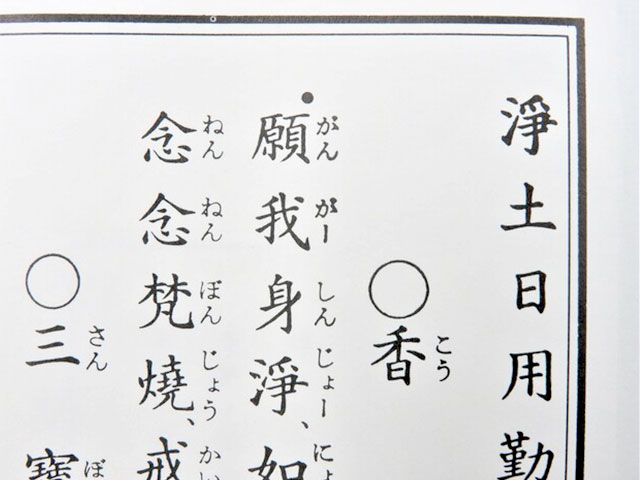 淨土日用勤
○香
こう
願我身淨、如
がんがーしんじょーにょ
念念焚燒、戒
ねんねんぼんじょうかい
○三寶
さんぼ